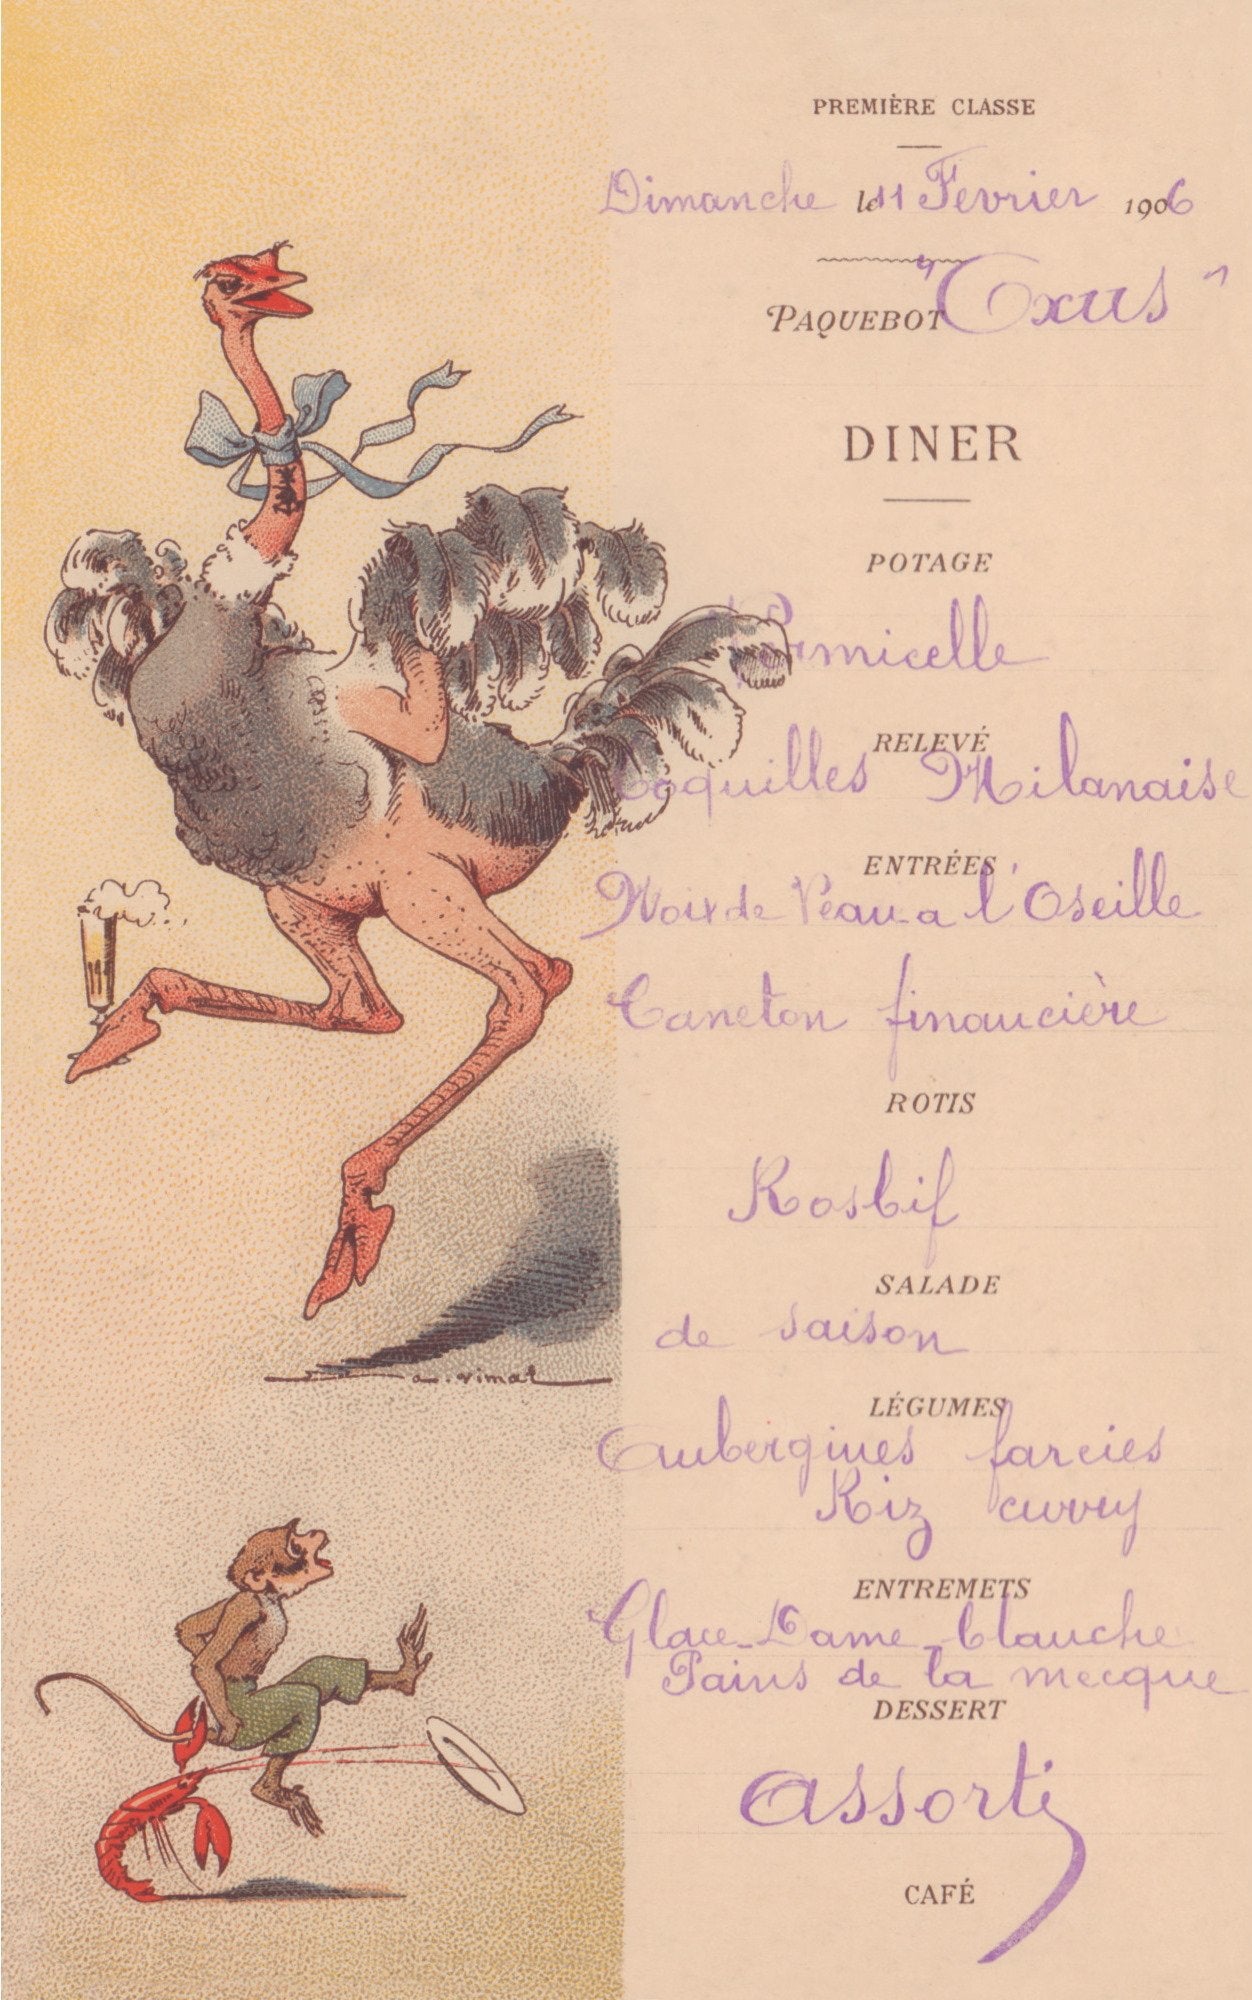 PREMIÈRE CLASSE
Dimanche le 11 Fevrier 1906
PAQUEBOT "Oxus"
DINER
POTAGE
Vermicelle
RELEVÉ
Coquilles Milanaise
ENTRÉES
Noix de Veau a l'Oseille
Caneton financière
ROTIS
Rosbif
SALADE
de saison
LÉGUMES
Aubergines farcies
Riz curry
ENTREMETS
Glace-Dame-blanche
Pains de la mecque
DESSERT
assorti
CAFÉ
a. vimat